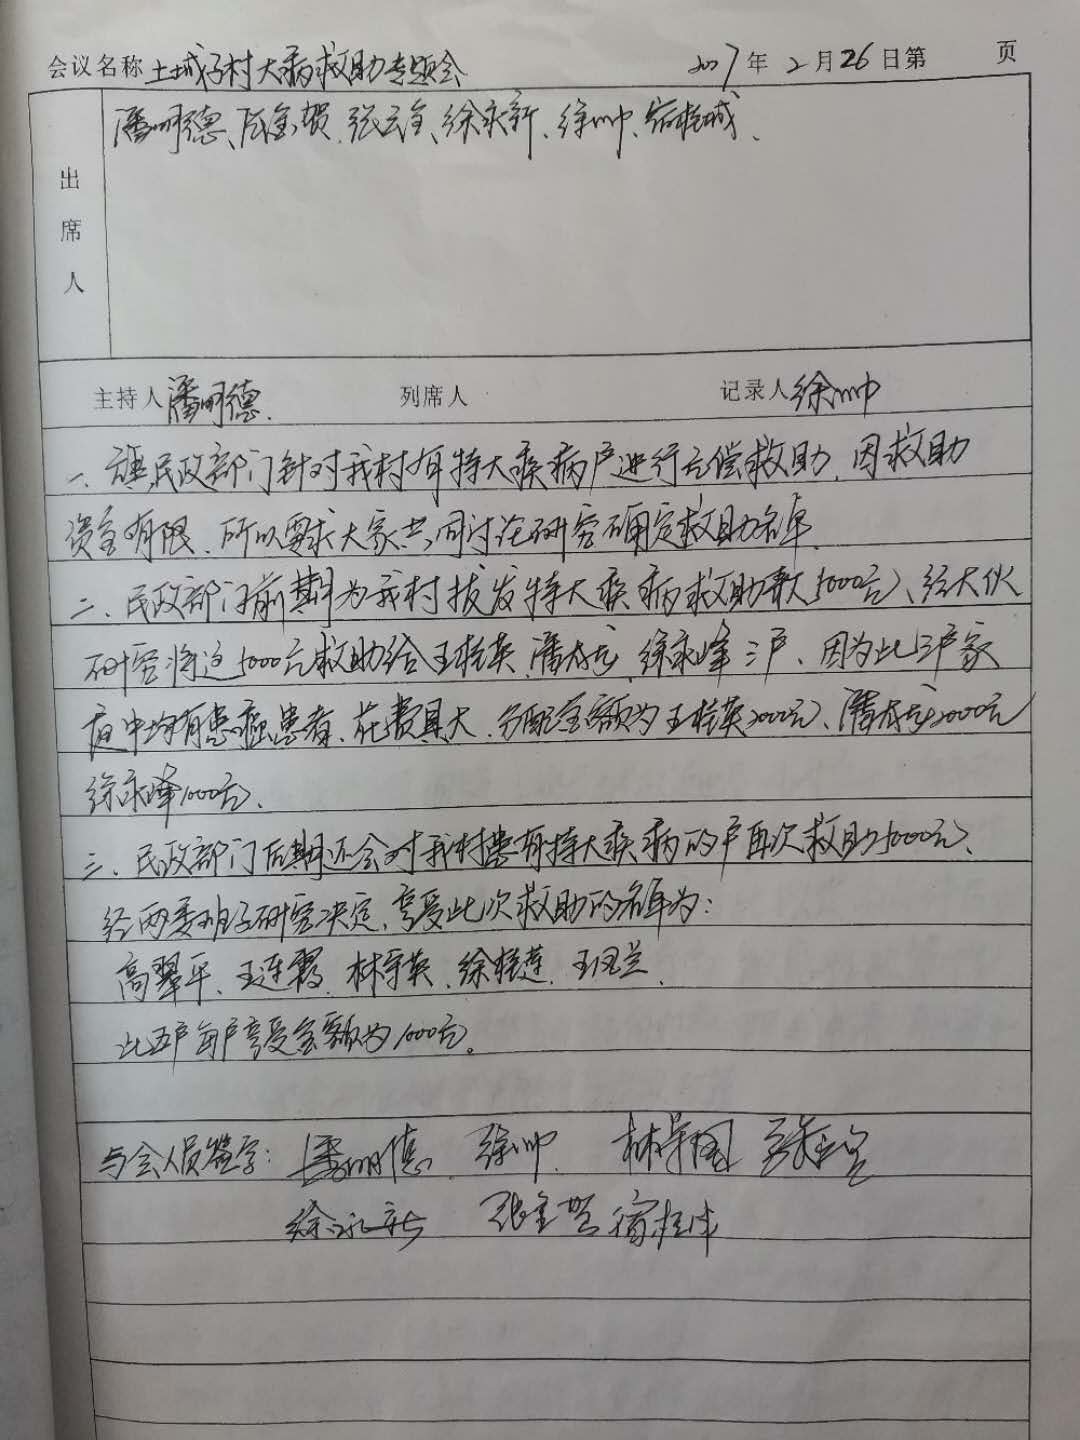 会议名称 土城子村大病救助专题会 2017年2月26日第 页
出席人
潘明德、张金哲、张云玲、徐永新、徐帅、宿桂成、
主持人 潘明德 列席人 记录人 徐帅
一、旗民政部门针对我村有特大疾病户进行无偿救助，因救助
资金有限、所以要求大家共同讨论研究确定救助名单、
二、民政部门前期为我村拔发特大疾病救助款5000元、经大伙
研究将这5000元救助给王桂英、潘、徐永峰三户、因为此三户家
庭中均有患癌患者、花费具大、分配金额为王桂英2000元、潘2000元
徐永峰1000元、
三、民政部门后期还会对我村患有特大疾病的户再次救助5000元、
经两委班子研究决定、享受此次救助的名单为：
高翠平、王连霞、林守英、徐桂莲、王凤兰、
此五户每户享受金额为1000元。
与会人员签字： 潘明德 徐帅 林守国
徐永新 张金哲 宿桂成